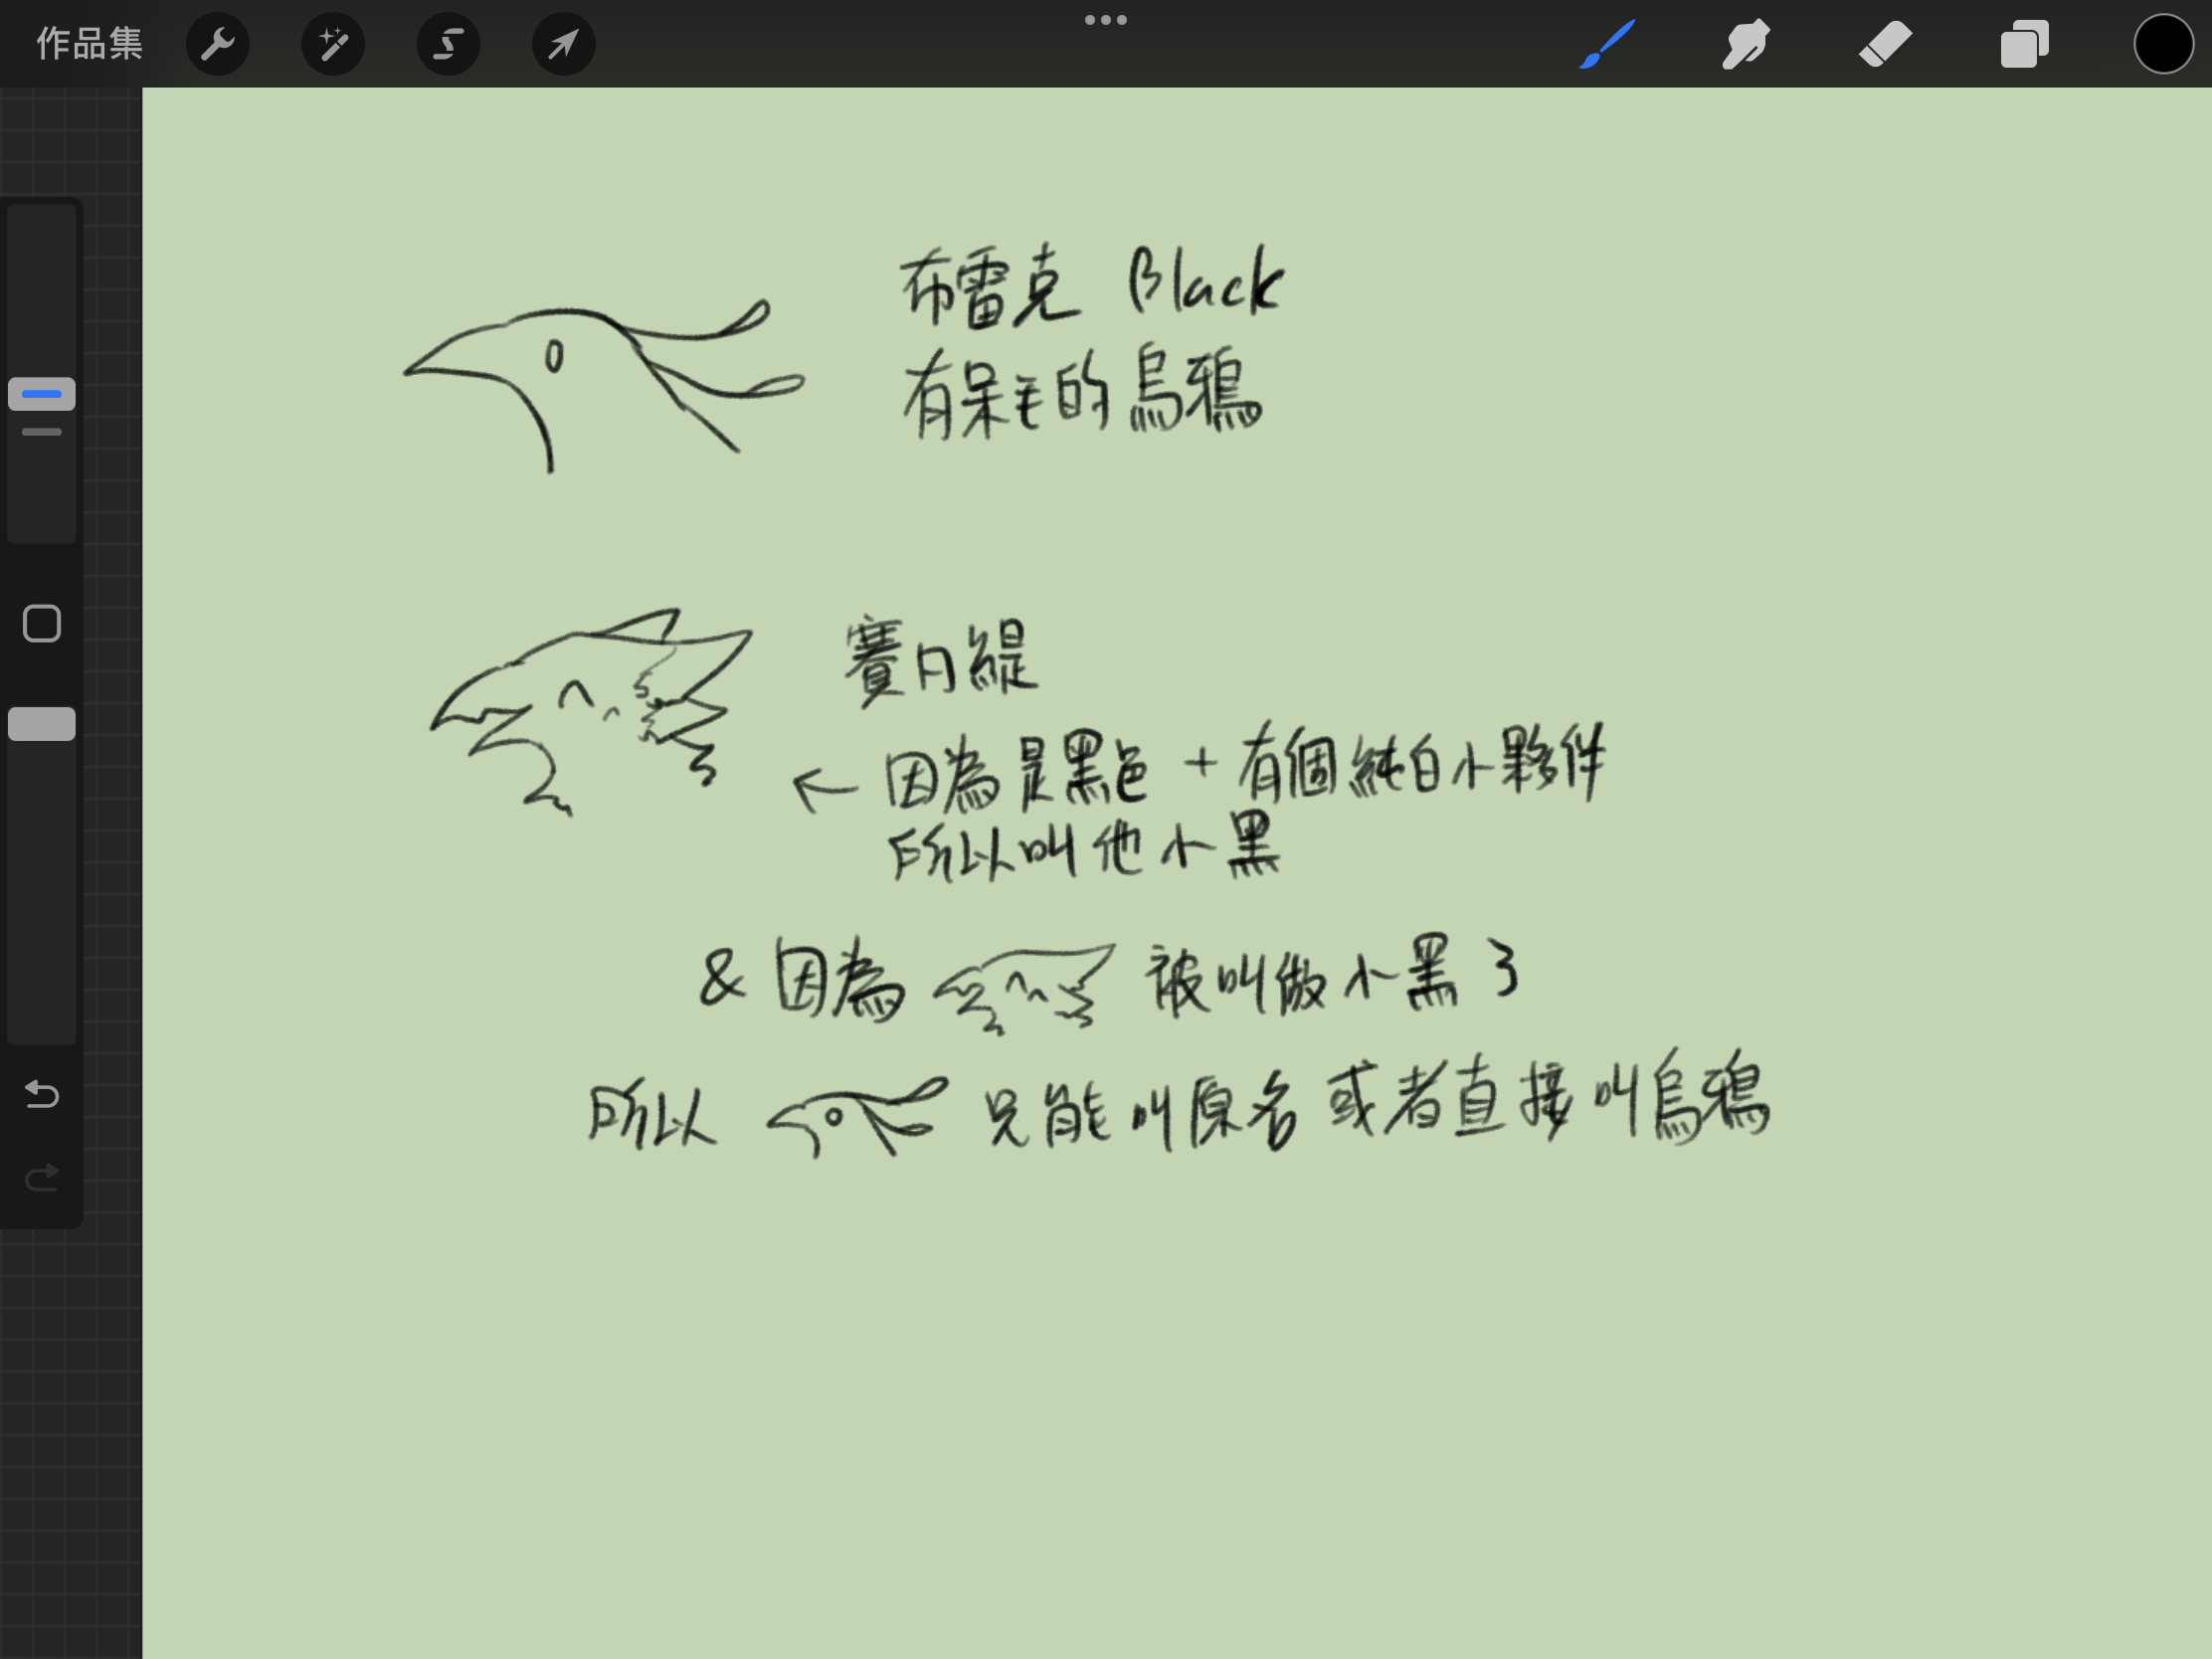 作品集
布雷克 Black
有呆毛的烏鴉
賽內緹
← 因為是黑色 + 有個純白小夥伴
所以叫他小黑
& 因為 被叫做小黑了
所以 只能叫原名或者直接叫烏鴉